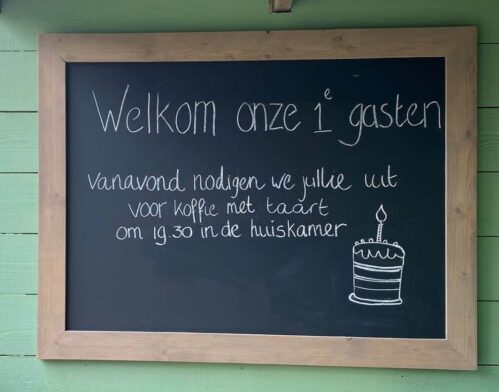 Welkom onze 1e gasten
vanavond nodigen we jullie uit
voor koffie met taart
om 19.30 in de huiskamer